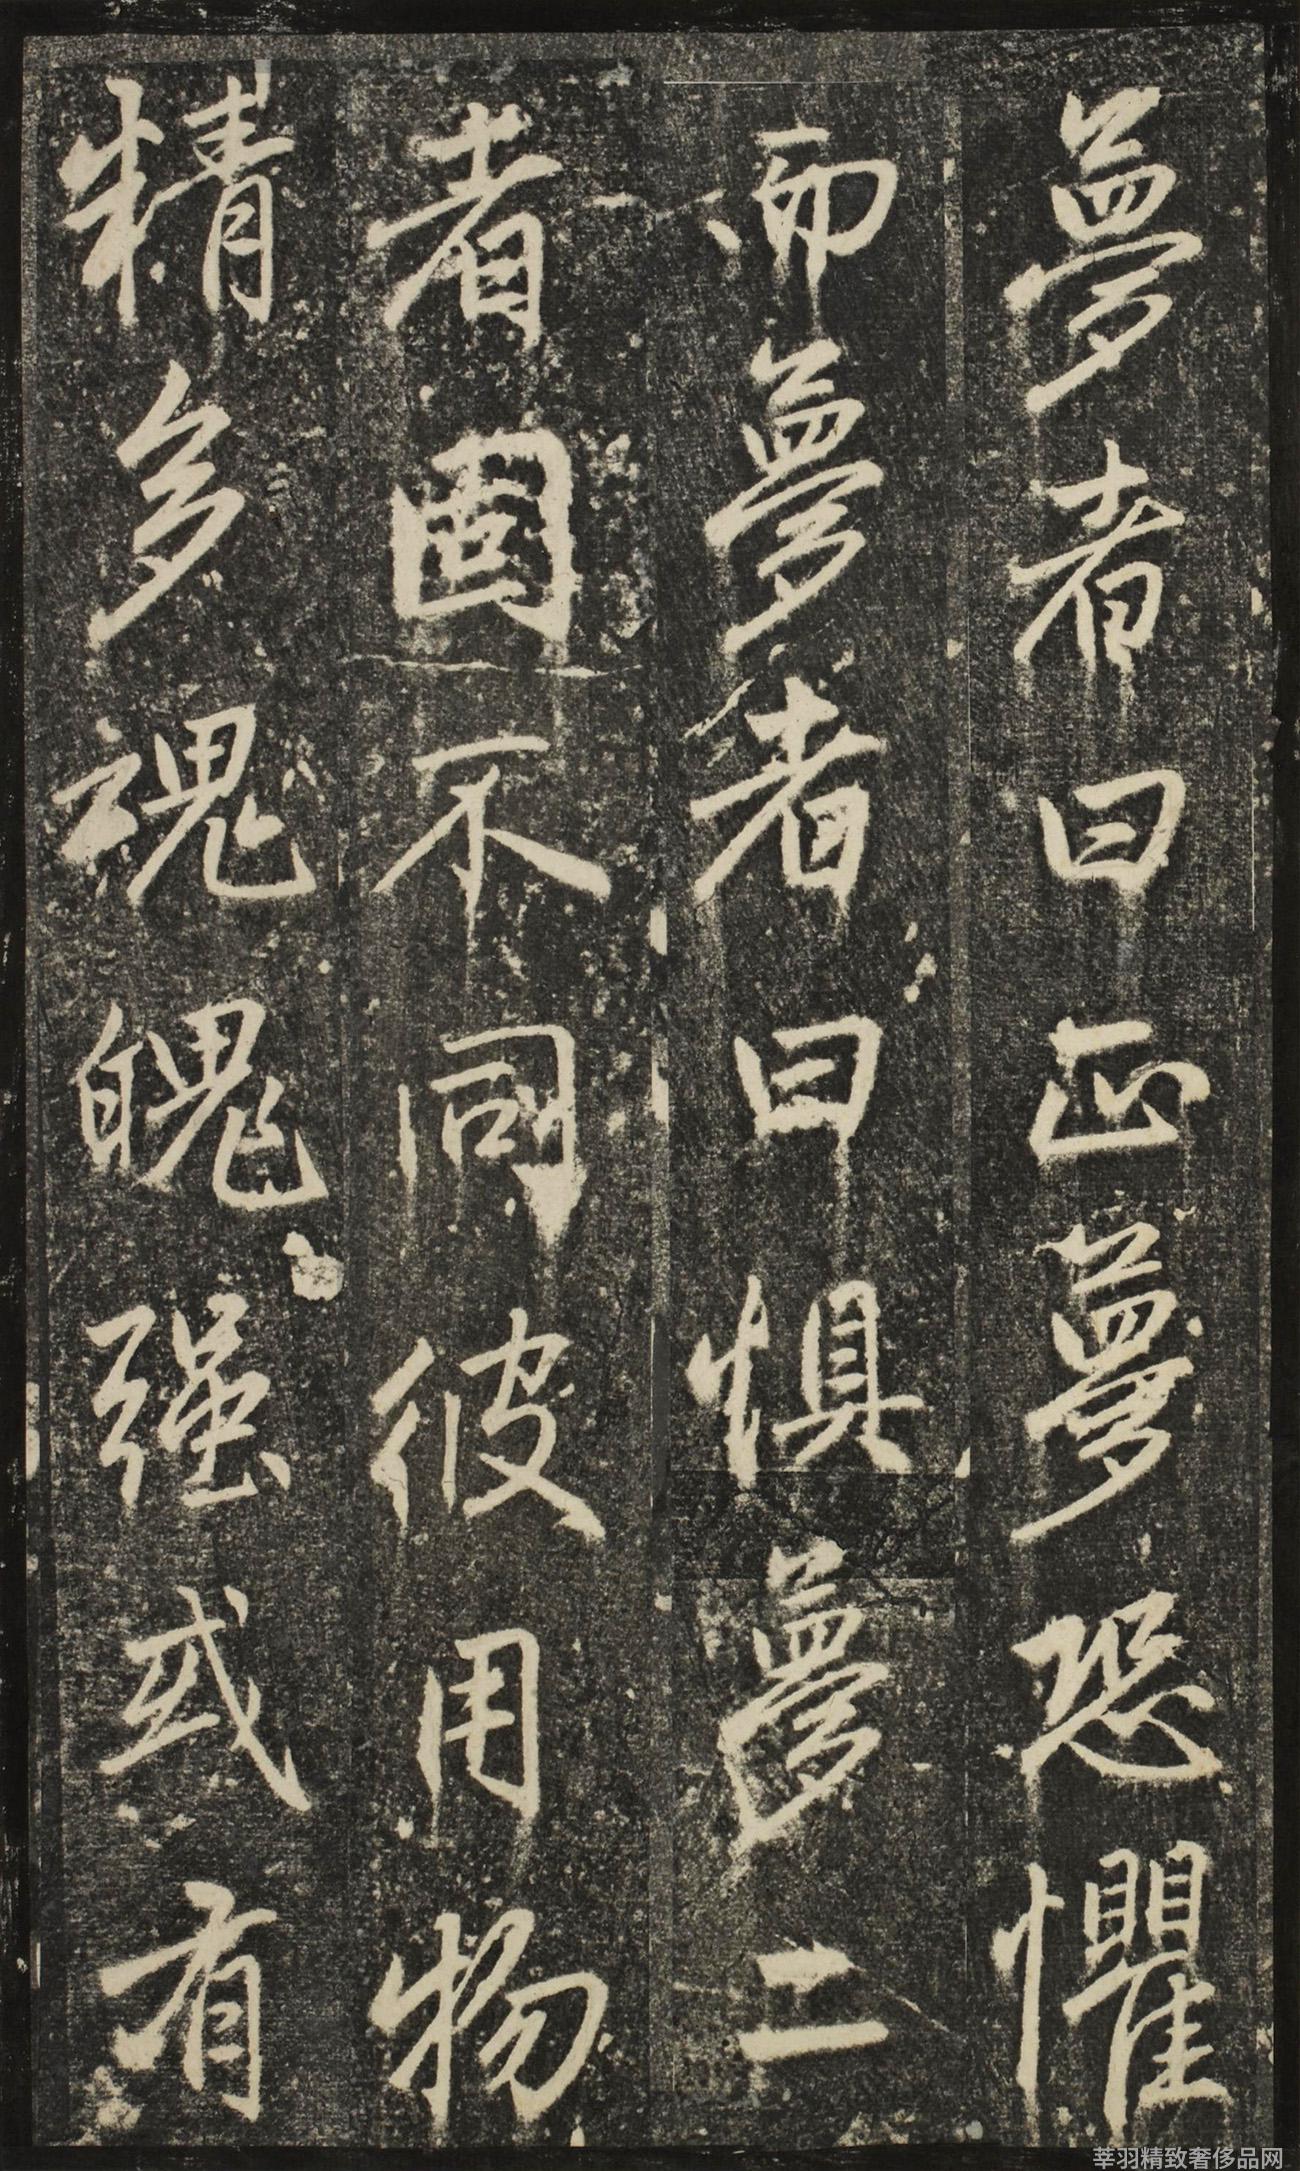 夢者曰正夢恐懼
而夢者曰惧夢二
者固不同彼用物
精多魂魄强或有
莘羽精致奢侈品网